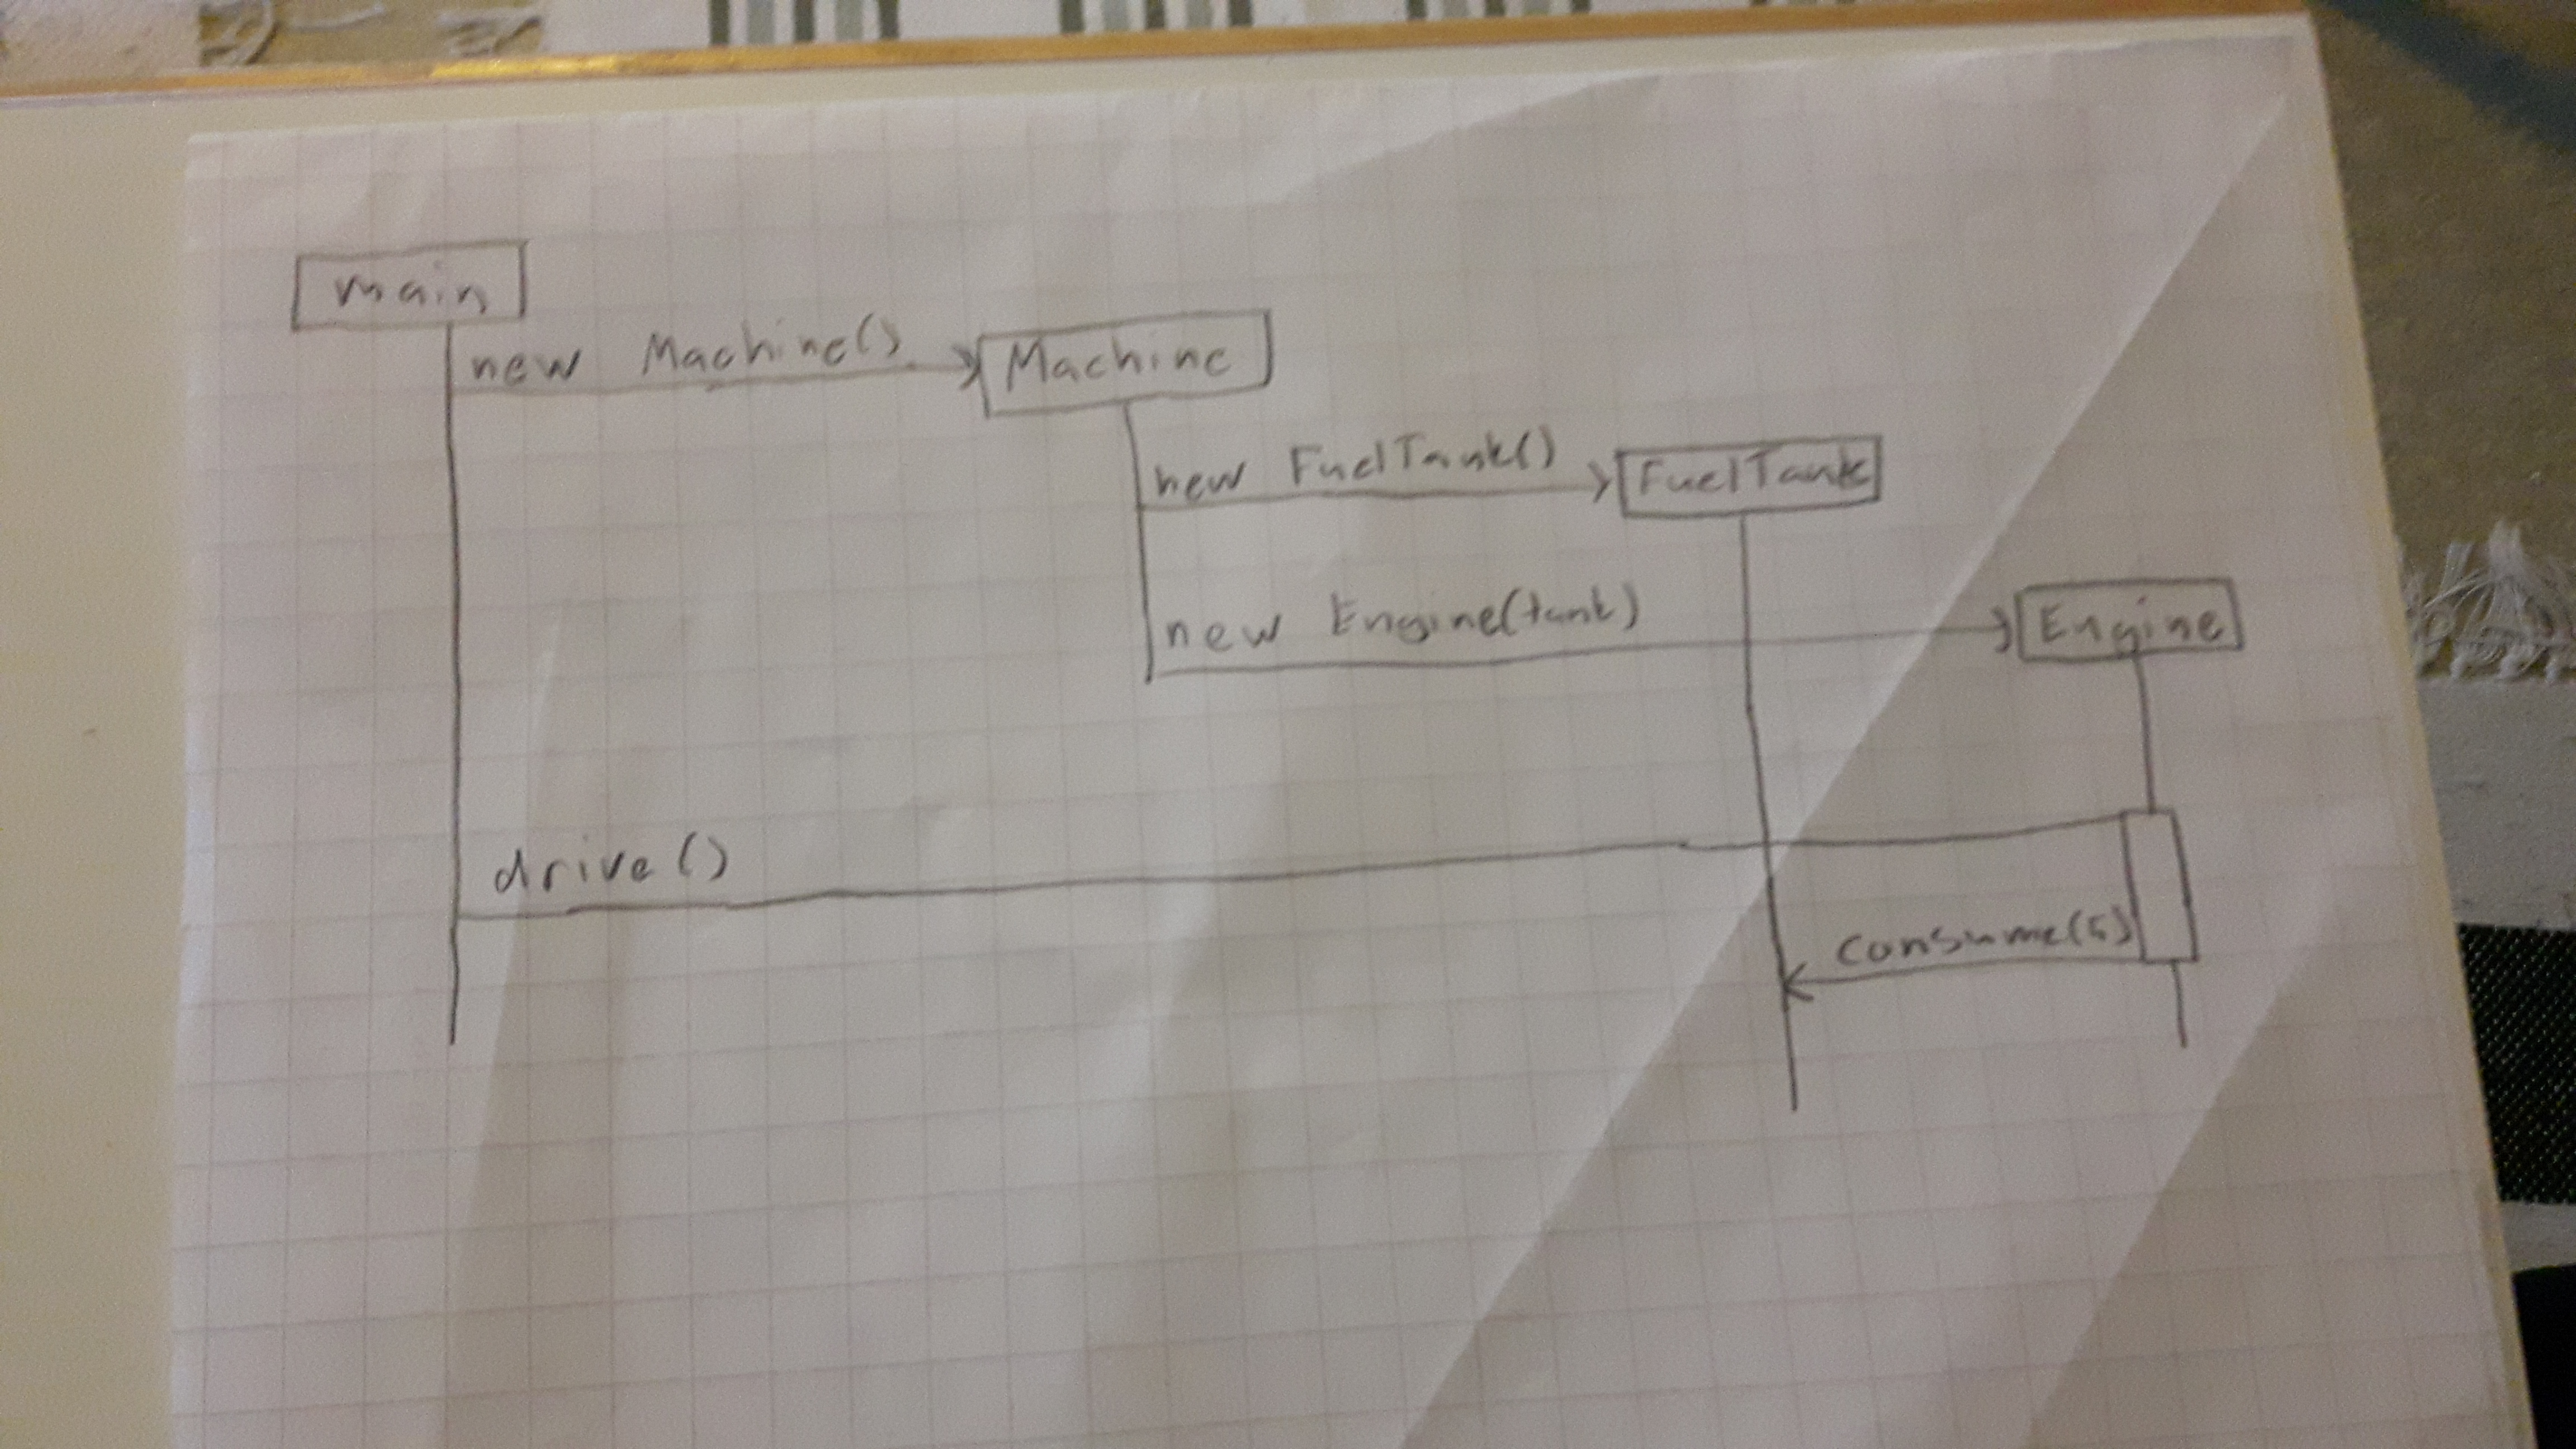 main
new Machine()
Machine
new FuelTank()
FuelTank
new Engine(tank)
Engine
drive()
consume(5)